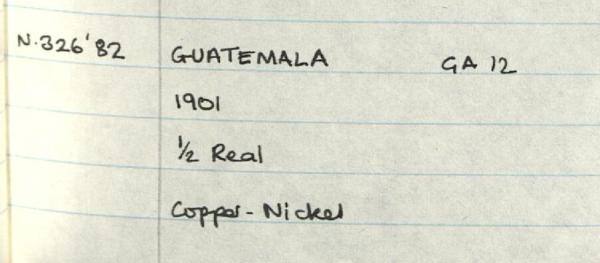 N.326'82 GUATEMALA GA 12
1901
½ Real
Copper-Nickel